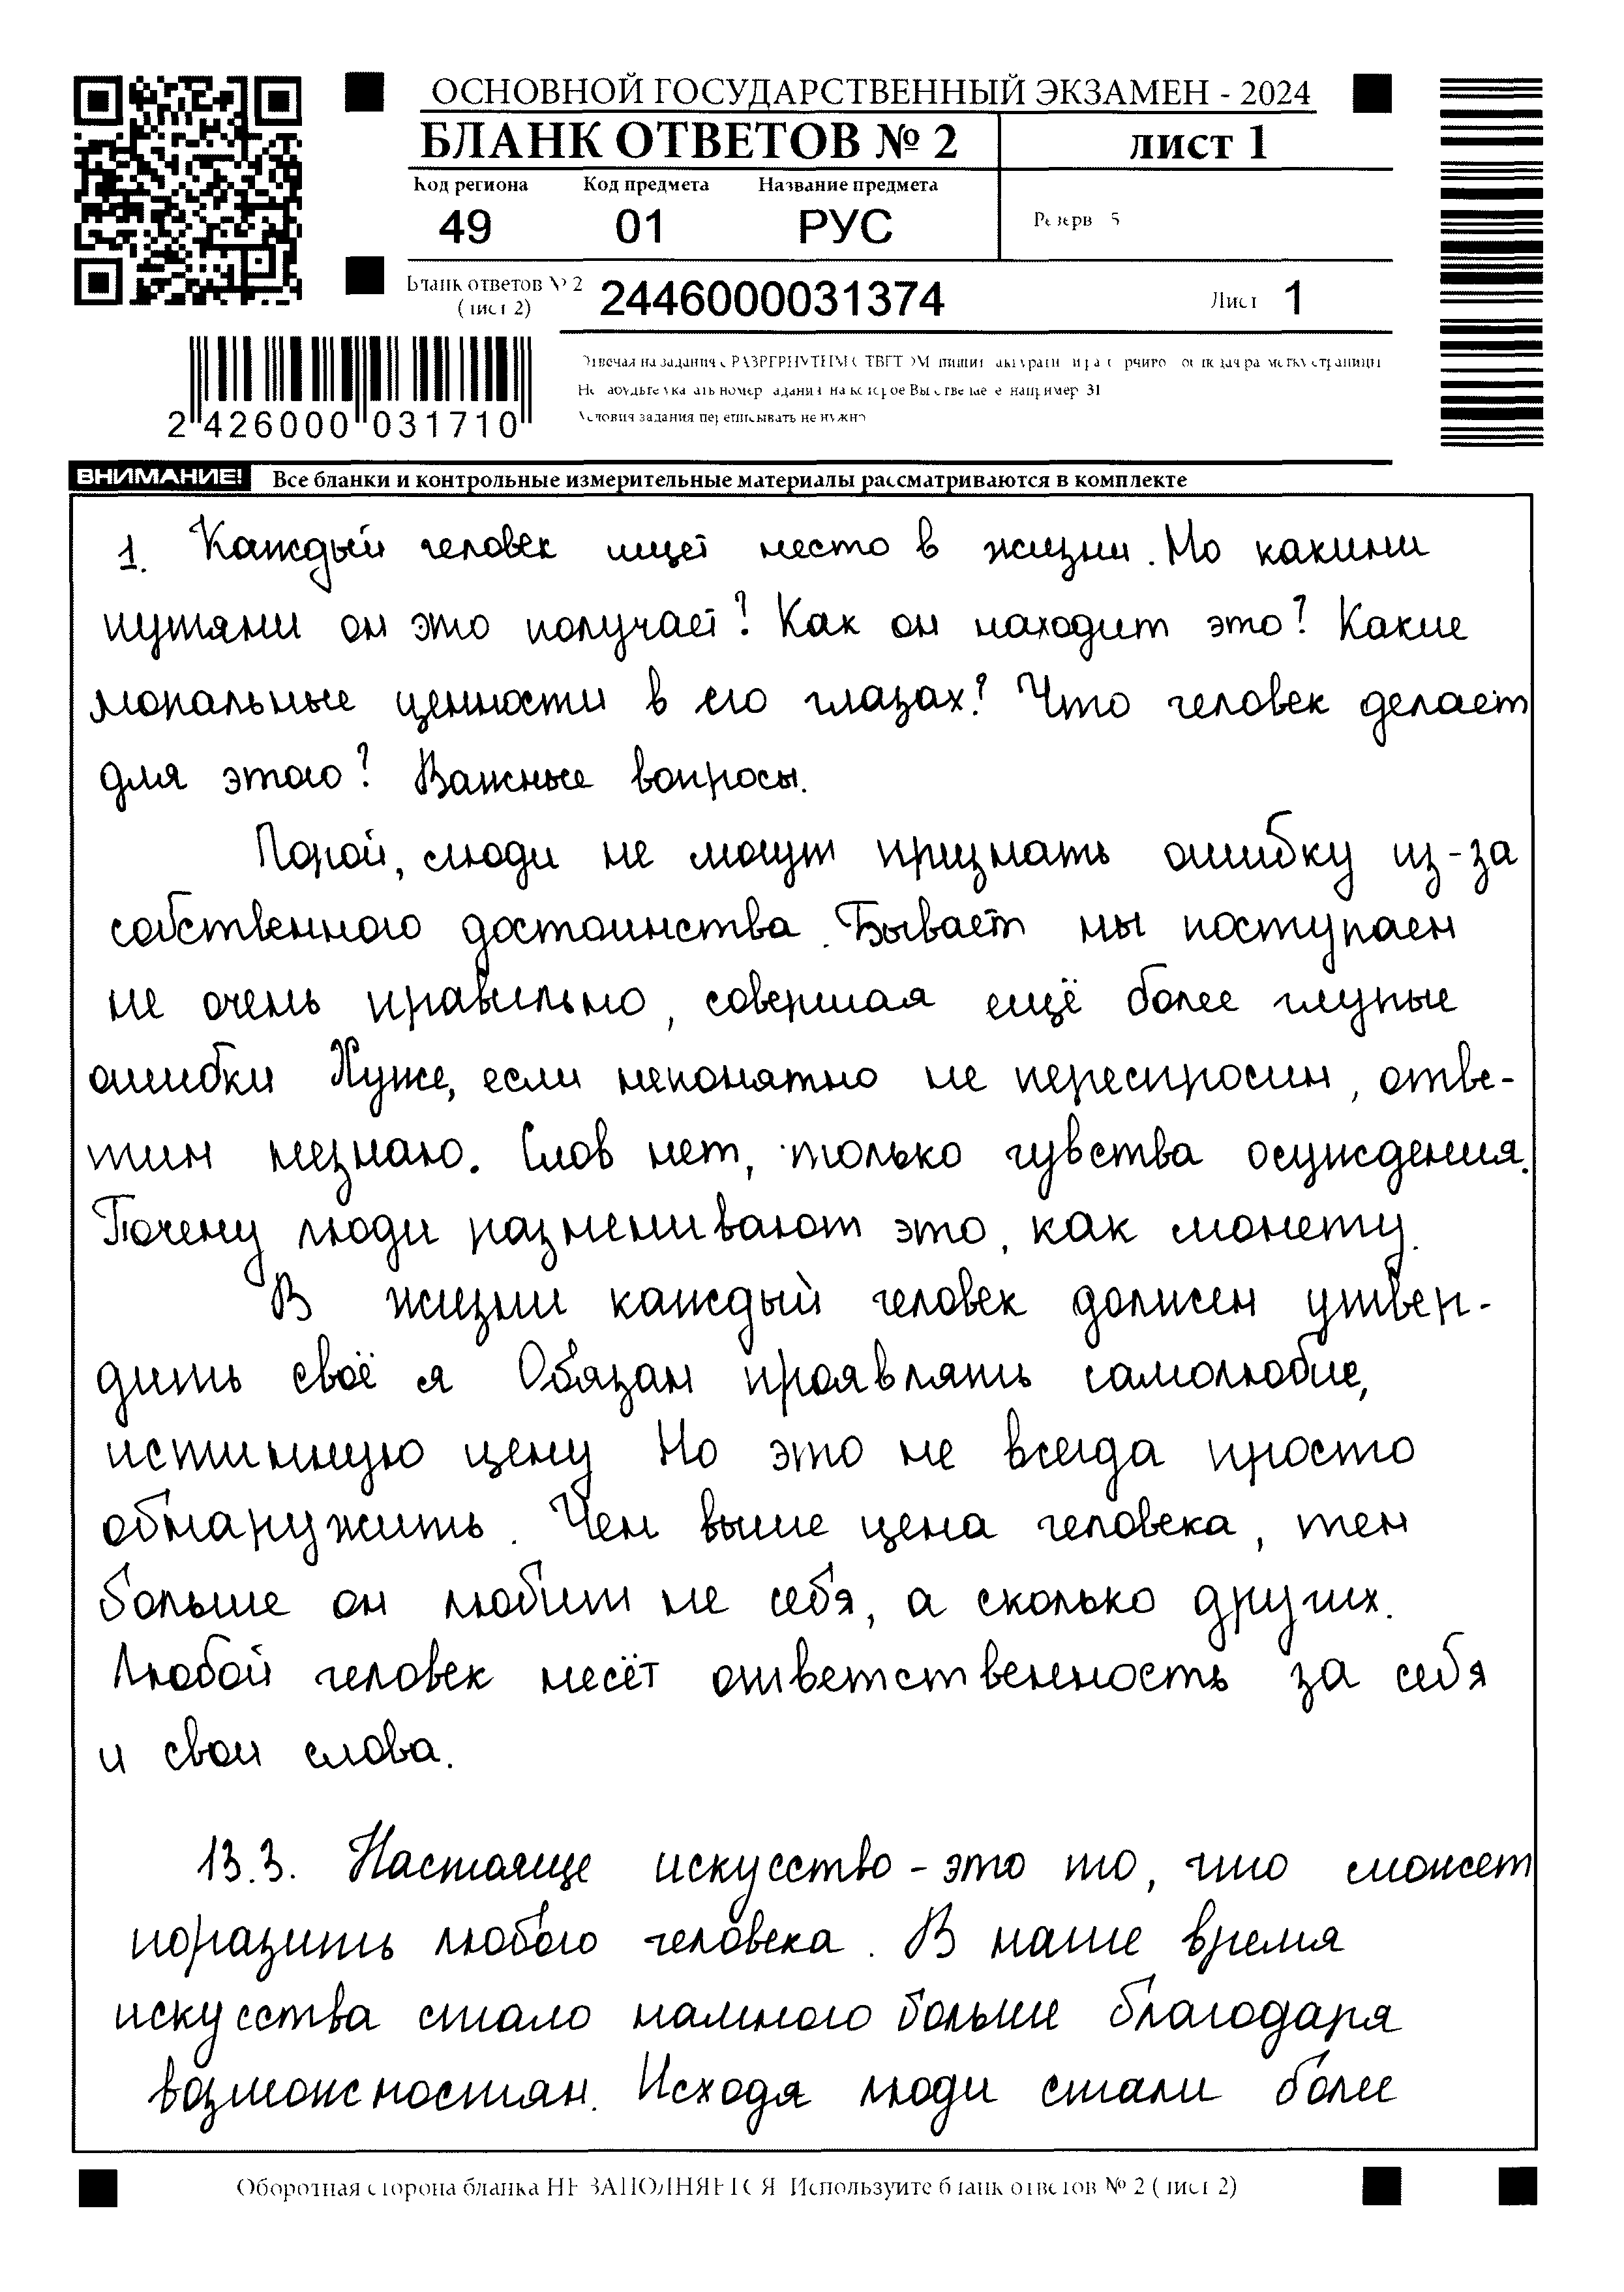 ОСНОВНОЙ ГОСУДАРСТВЕННЫЙ ЭКЗАМЕН - 2024
БЛАНК ОТВЕТОВ № 2
лист 1
Код региона Код предмета Название предмета
49 01 РУС
Резерв 5
Бланк ответов № 2
(лист 2)
2446000031374
Лист 1
2 426000 031710
ВНИМАНИЕ! Все бланки и контрольные измерительные материалы рассматриваются в комплекте
1. Каждый человек ищет место в жизни. Но какими
путями он это получает? Как он находит это? Какие
моральные ценности в его глазах? Что человек делает
для этого? Важные вопросы.
Порой, люди не могут признать ошибку из-за
собственного достоинства. Бывает мы поступаем
не очень правильно, совершая ещё более глупые
ошибки Хуже, если непонятно не переспросим, отве-
тим незнаю. Слов нет, только чувства осуждения.
Почему люди разменивают это, как монету.
В жизни каждый человек должен утвер-
дить своё я Обязан проявлять самолюбие,
истинную цену Но это не всегда просто
обнаружить. Чем выше цена человека, тем
больше он любит не себя, а сколько других.
Любой человек несёт ответственность за себя
и свои слова.
13.3. Настояще искусство - это то, что может
поразить любого человека. В наше время
искусства стало намного больше благодаря
возможностям. Исходя люди стали более
Оборотная сторона бланка НЕ ЗАПОЛНЯЕТСЯ Используйте бланк ответов № 2 (лист 2)